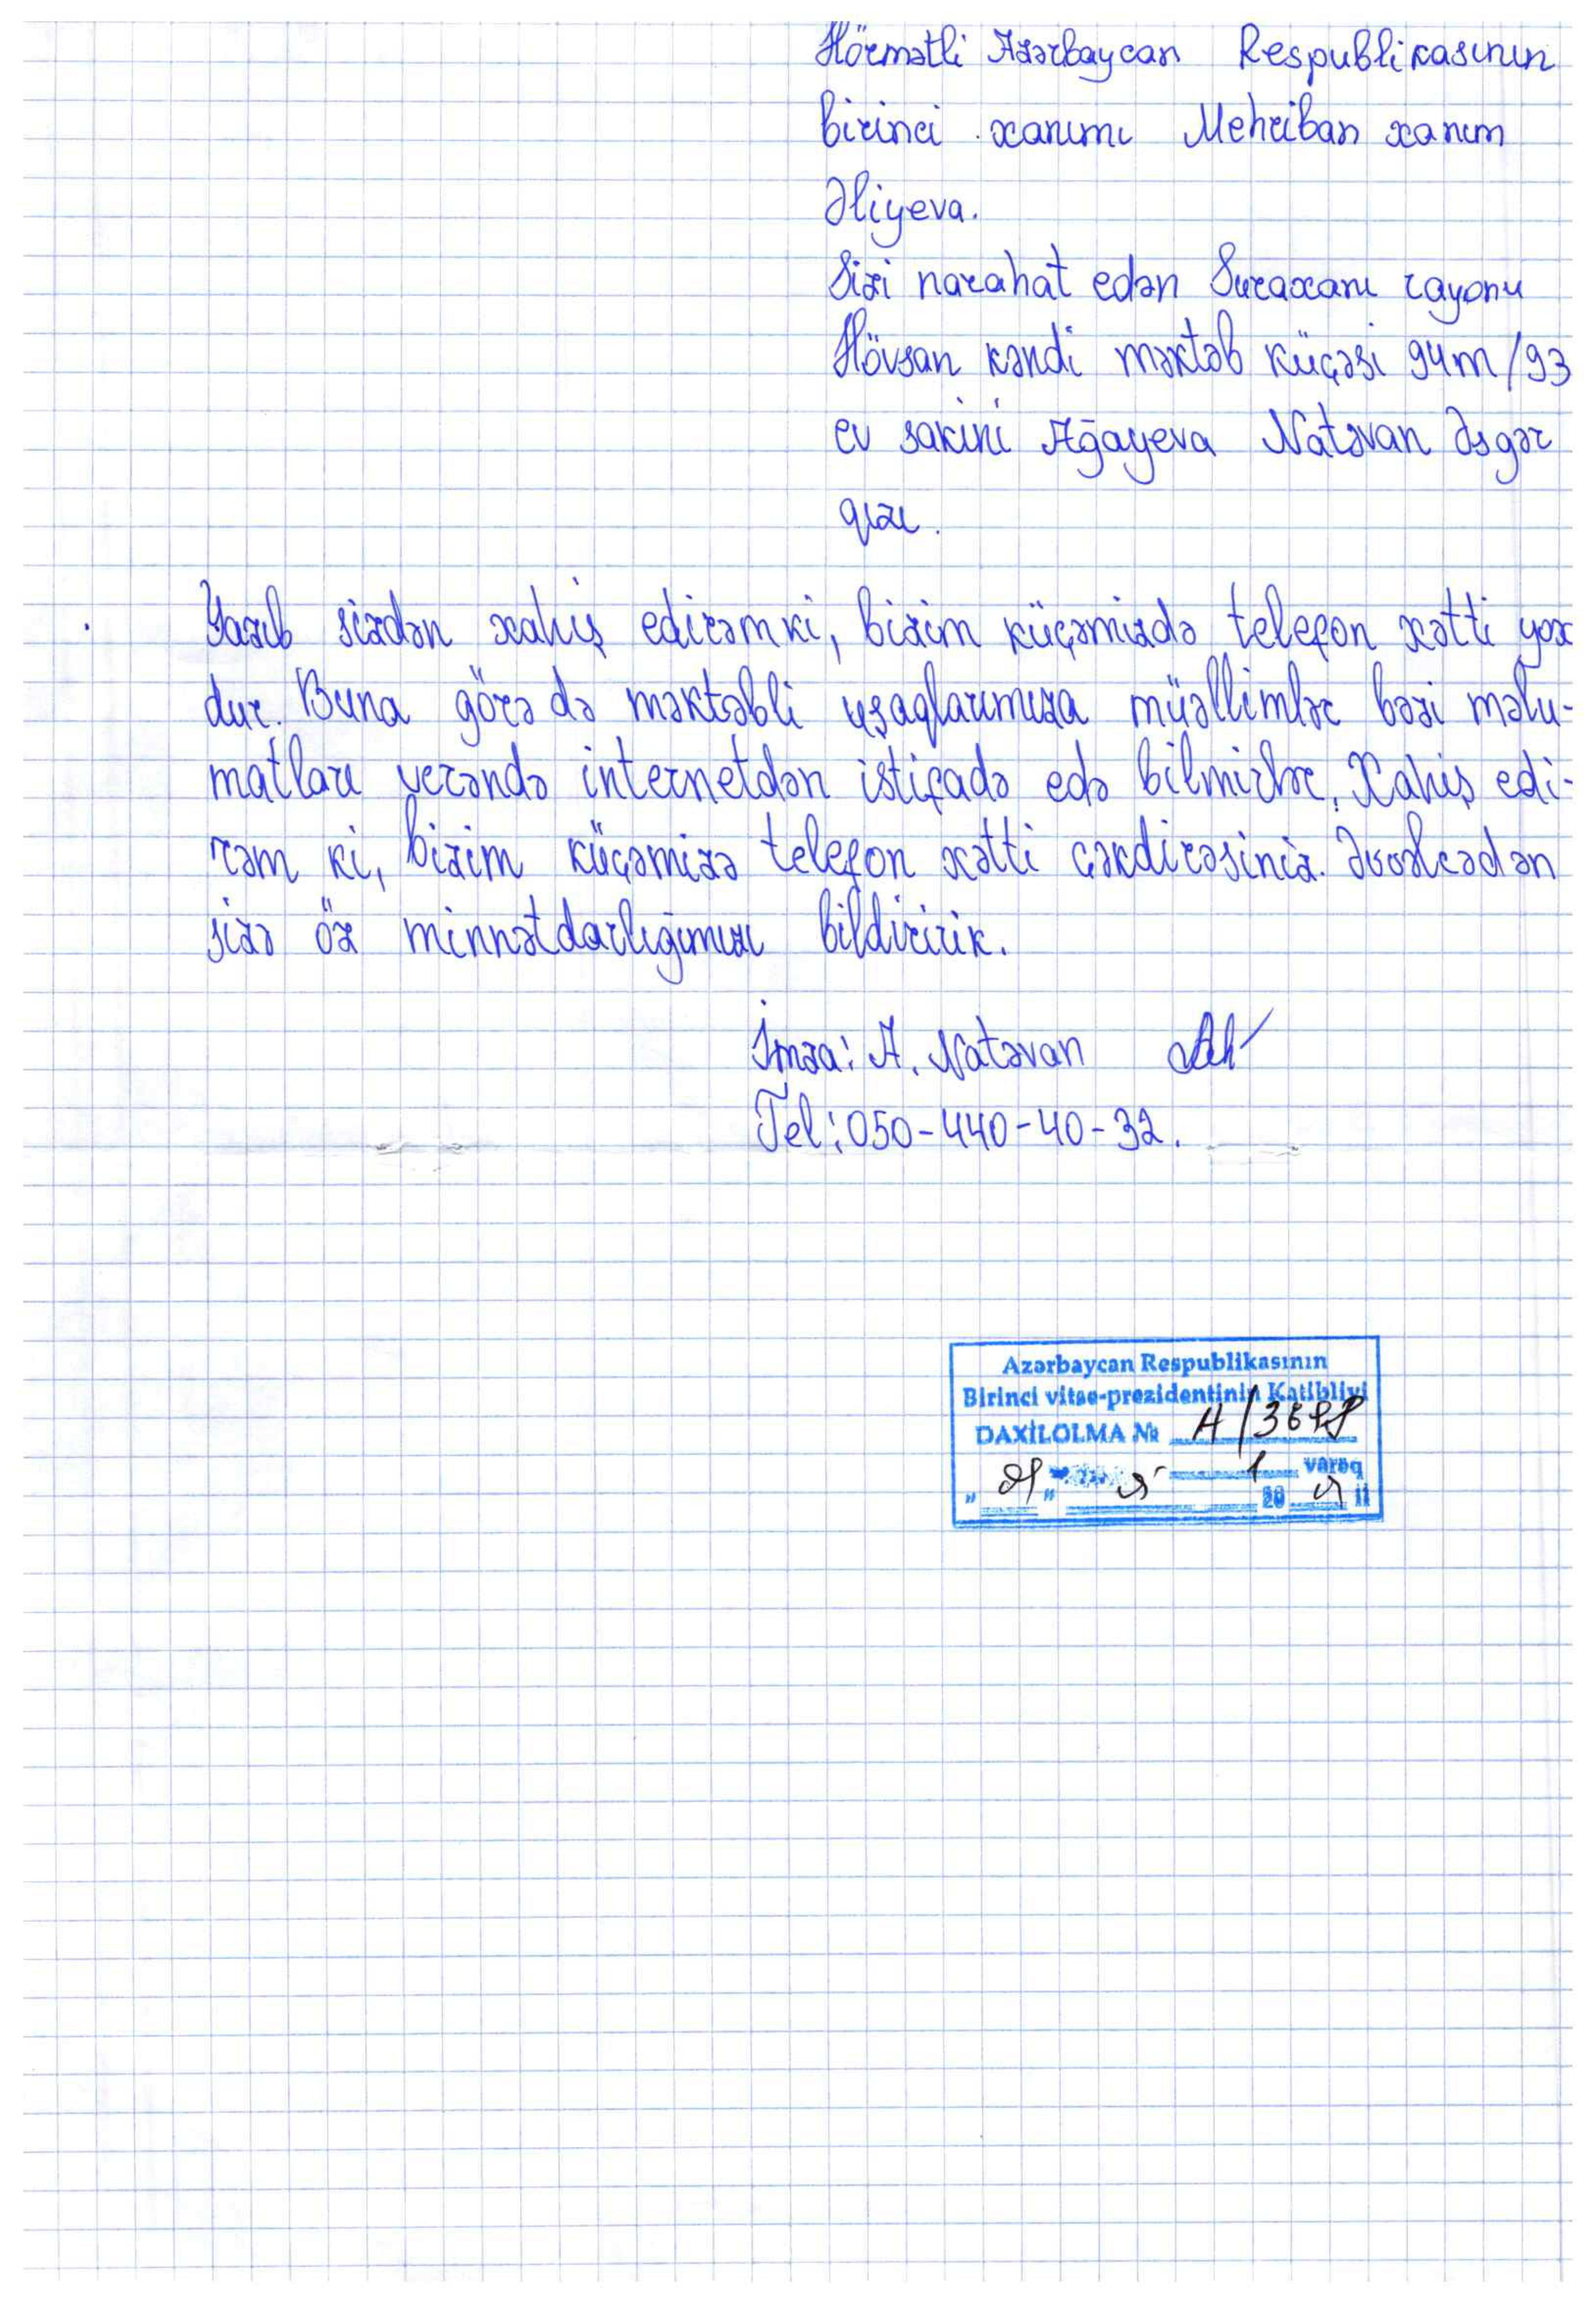 Hörmətli Azərbaycan Respublikasının
birinci xanımı Mehriban xanım
Əliyeva.
Sizi narahat edən Suraxanı rayonu
Hövsan kəndi məktəb küçəsi 94m/93
ev sakini Ağayeva Natəvan Əsgər
qızı.
Yazıb sizdən xahiş edirəmki, bizim küçəmizdə telefon xətti yox
dur. Buna görə də məktəbli uşaqlarımıza müəllimlər bəzi məlu-
matları verəndə internetdən istifadə edə bilmirlər. Xahiş edi-
rəm ki, bizim küçəmizə telefon xətti çəkdirəsiniz. Əvvəlcədən
sizə öz minnətdarlığımızı bildiririk.
İmza: A. Natəvan
Tel: 050-440-40-32.
Azərbaycan Respublikasının
Birinci vitse-prezidentinin Katibliyi
DAXİLOLMA №
1 vərəq
20 il